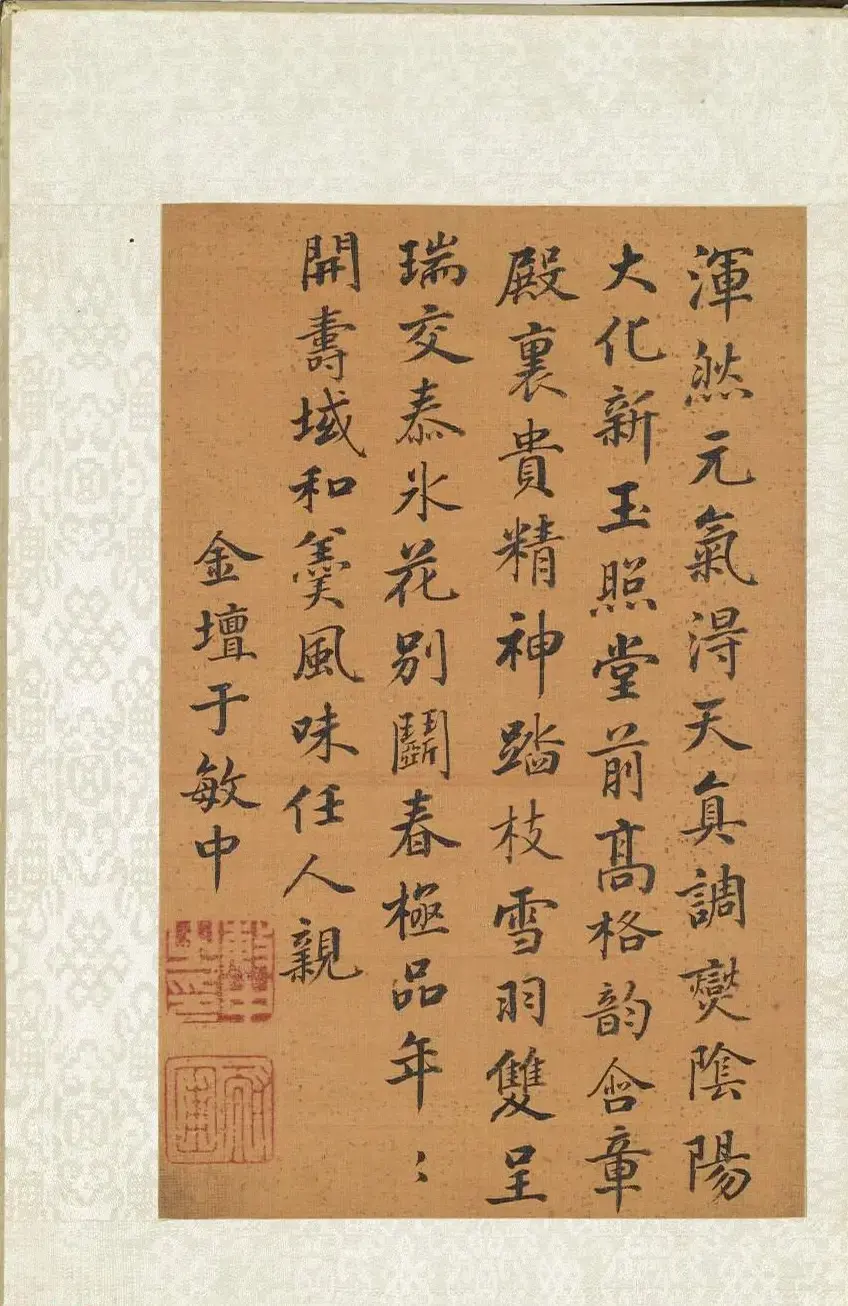 渾然元氣淂天真調爕陰陽
大化新玉照堂前髙格韵含章
殿裏貴精神踏枝雪羽雙呈
瑞交泰氷花别鬭春極品年〻
開壽域和羮風味任人親
金壇于敏中